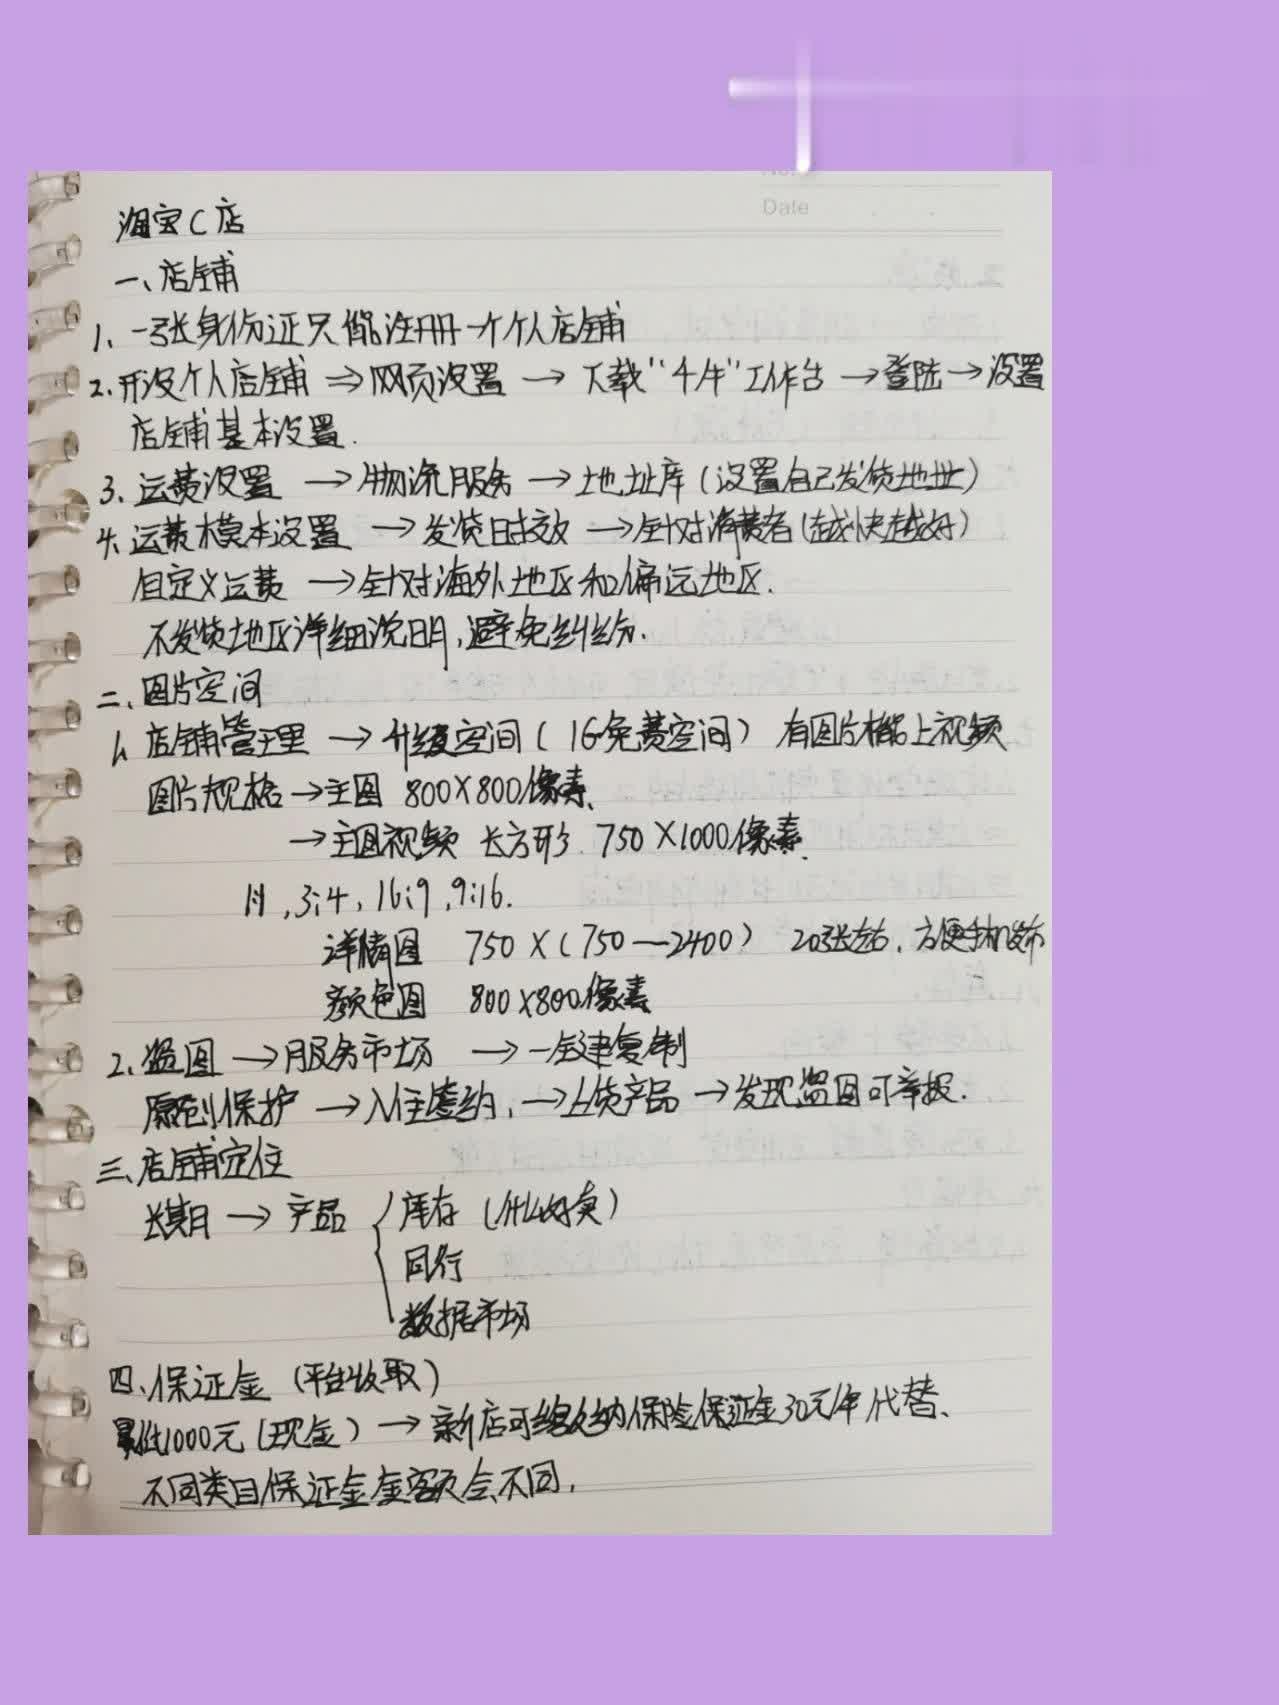 Date
淘宝C店
一、店铺
1、一张身份证只能注册一个个人店铺
2.开设个人店铺 ⇒网页设置 →下载“千牛”工作台 →登陆→设置
店铺基本设置.
3、运费设置 →物流服务 →地址库(设置自己发货地址)
4.运费模本设置 →发货时效 →针对消费者(越快越好)
自定义运费 →针对海外地区和偏远地区.
不发货地区详细说明,避免纠纷.
二、图片空间
1、店铺管理 →升级空间(1G免费空间) 有图片才能上视频
图片规格→主图 800X800像素、
→主图视频 长方形 750X1000像素.
1:1,3:4,16:9,9:16.
详情图 750X(750—2400) 20张左右.方便手机发布
颜色图 800X800像素
2、盗图 →服务市场 →一键复制
原创保护 →入住签约,→上货产品→发现盗图可举报.
三、店铺定位
长期 → 产品 { 库存(什么好卖)
同行
数据市场
四、保证金(平台收取)
最低1000元(现金)→新店可缴纳保险保证金30元/年代替、
不同类目保证金金额会不同.